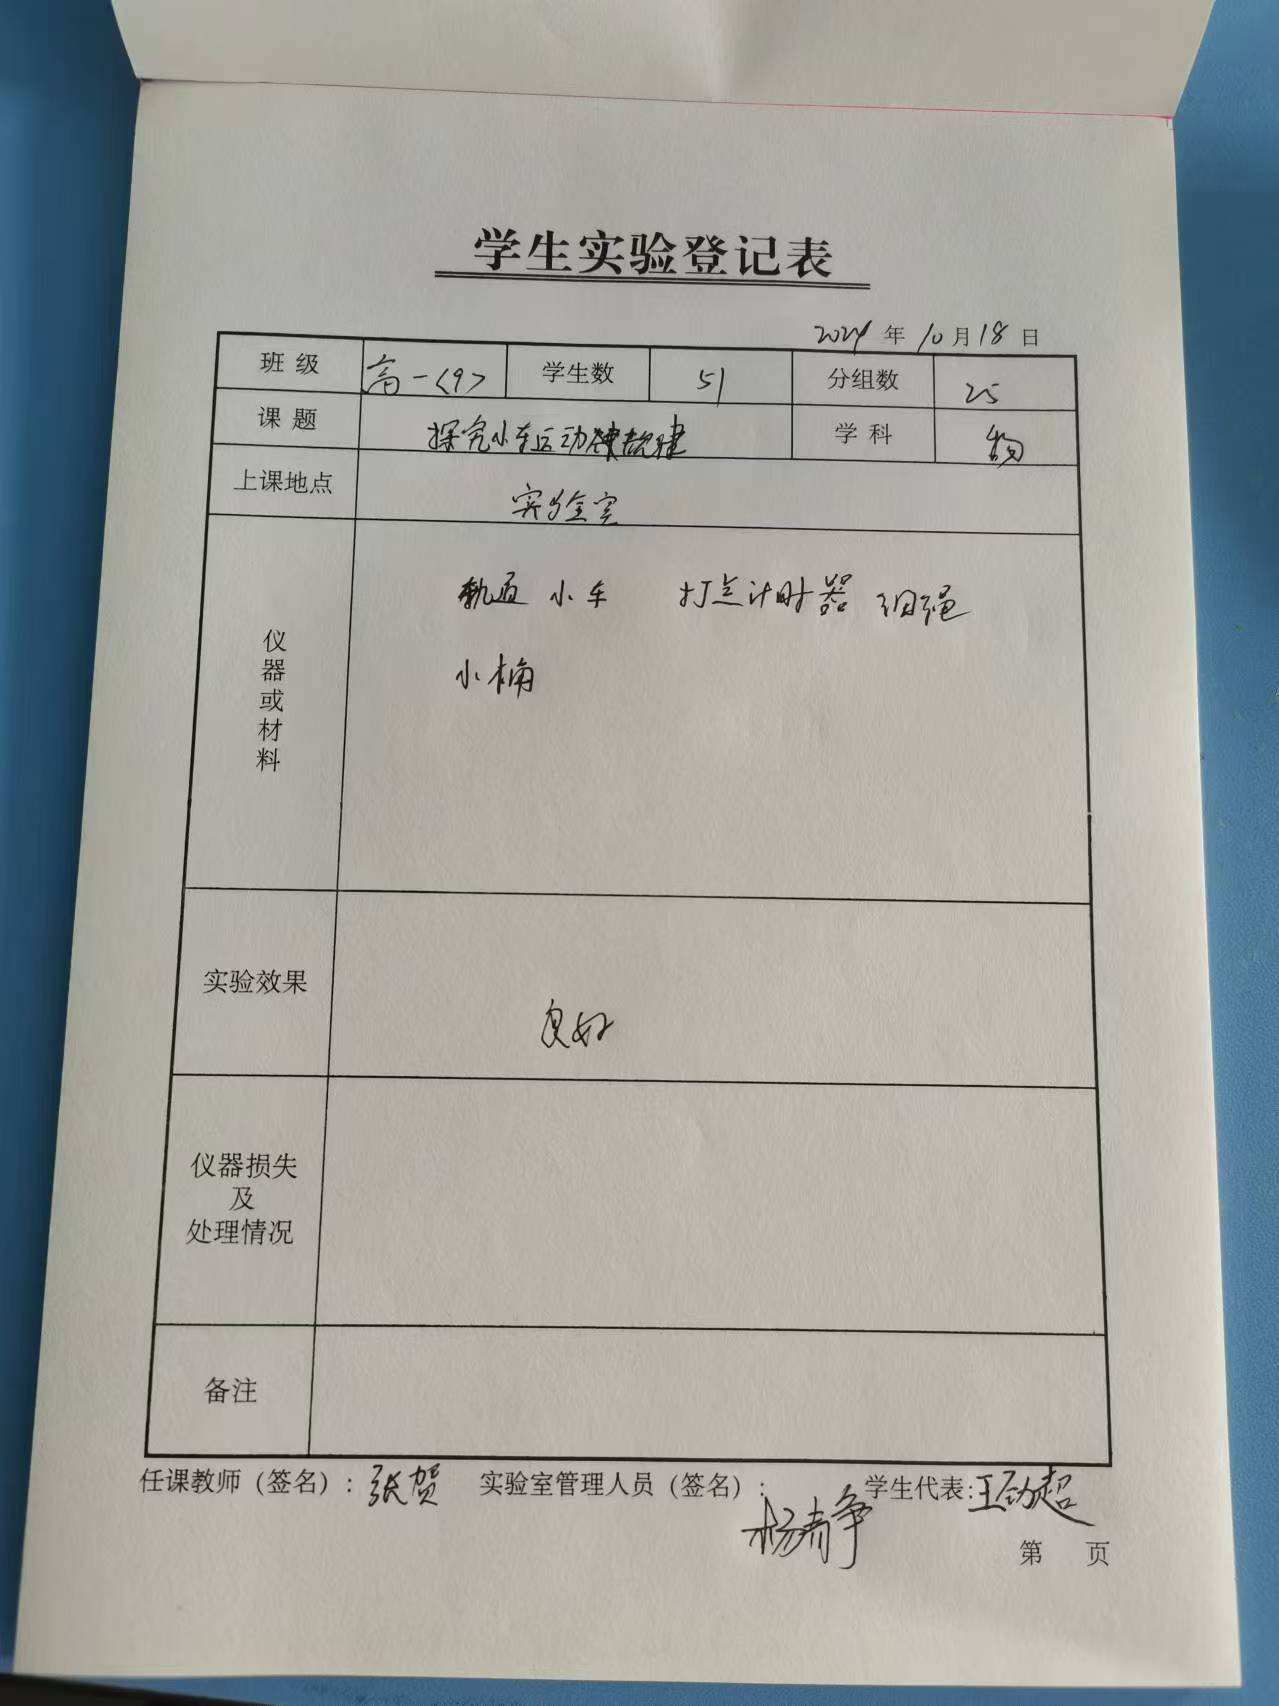 学生实验登记表
2024年10月18日
班级 高一<9> 学生数 51 分组数 25
课题 探究小车运动规律 学科 物
上课地点 实验室
仪器或材料 轨道 小车 打点计时器 细绳
小桶
实验效果 良好
仪器损失
及
处理情况
备注
任课教师（签名）：张贺 实验室管理人员（签名）：杨静 学生代表：王劲超
第 页